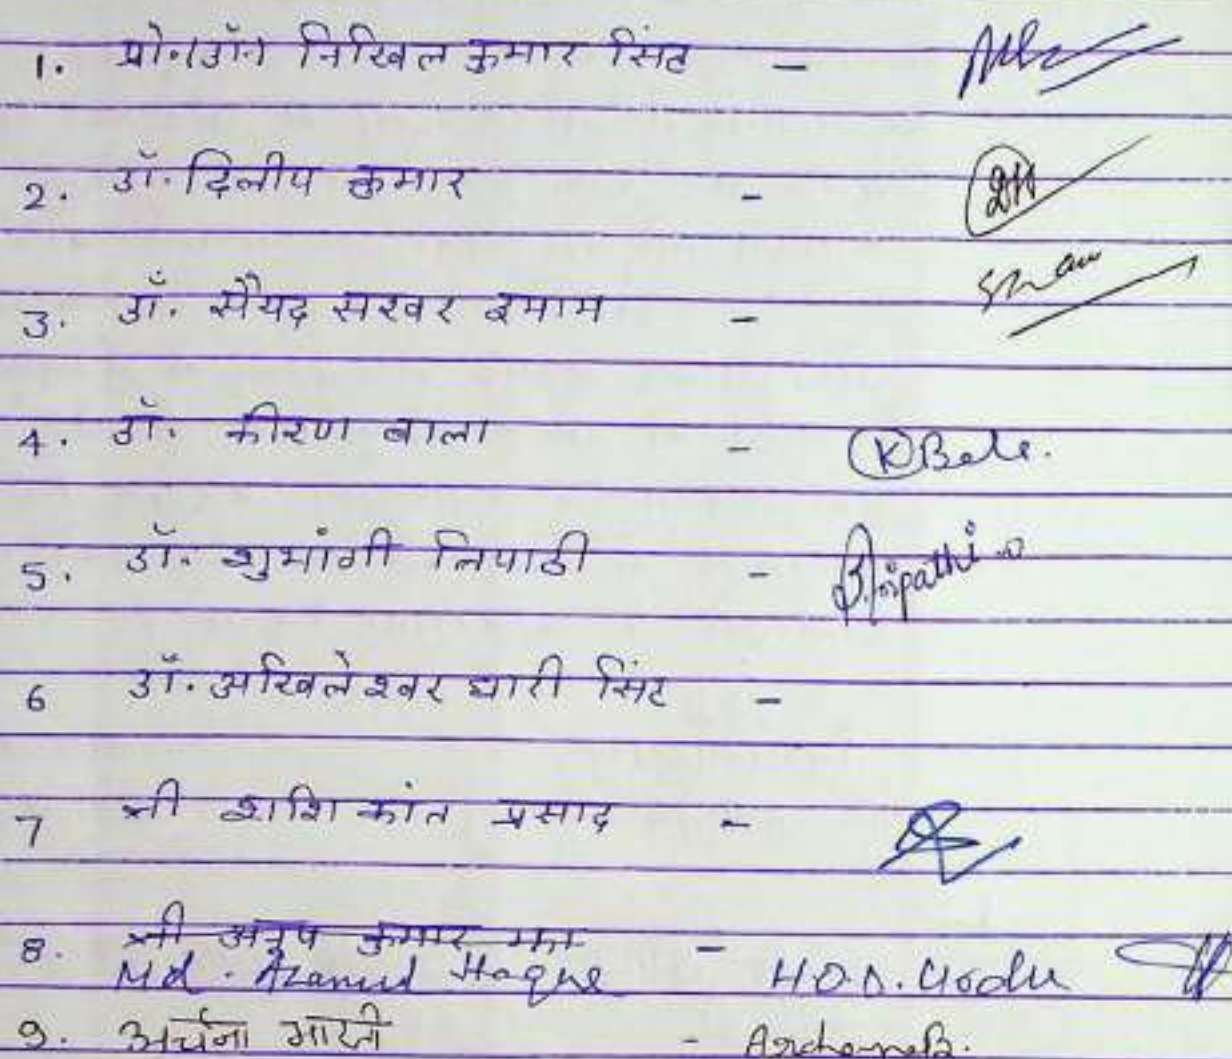 1. प्रो.(डॉ.) निखिल कुमार सिंह -
2. डॉ. दिलीप कुमार -
3. डॉ. सैयद सरवर इमाम -
4. डॉ. कीरण बाला - K Bala.
5. डॉ. शुभांगी त्रिपाठी - S.Tripathi
6 डॉ. अखिलेश्वर धारी सिंह -
7 श्री शशि कांत प्रसाद -
8. श्री अनुप कुमार झा -
Md. Azamul Haque H.O.D. Urdu
9. अर्चना भारती - ArchanaB.